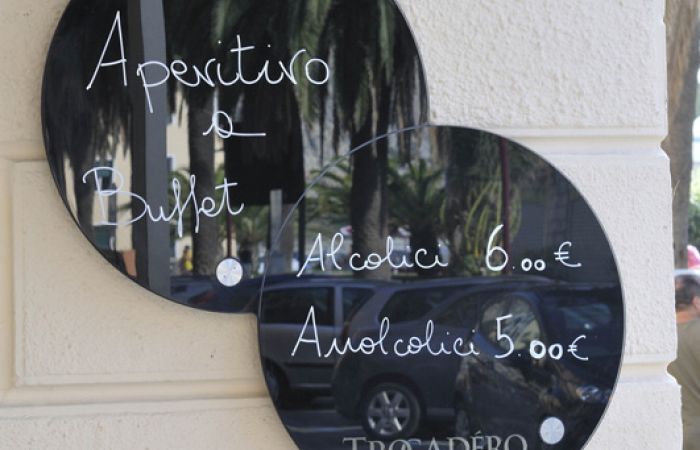 Aperitivo
a
Buffet
Alcolici 6.00€
Analcolici 5.00€
TROCADÉRO